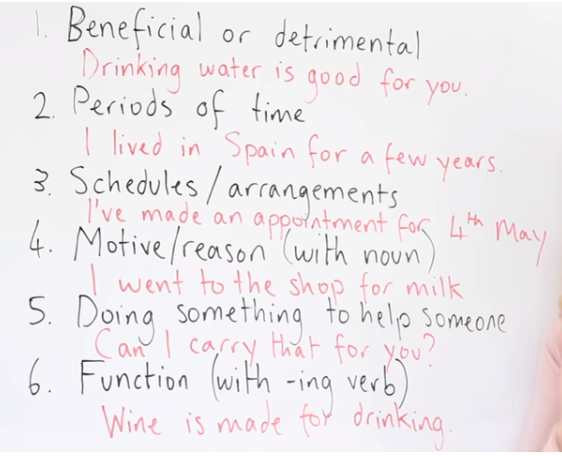 1. Beneficial or detrimental
Drinking water is good for you.
2. Periods of time
I lived in Spain for a few years.
3. Schedules/arrangements
I've made an appointment for 4th May
4. Motive/reason (with noun)
I went to the shop for milk
5. Doing something to help someone
Can I carry that for you?
6. Function (with -ing verb)
Wine is made for drinking.